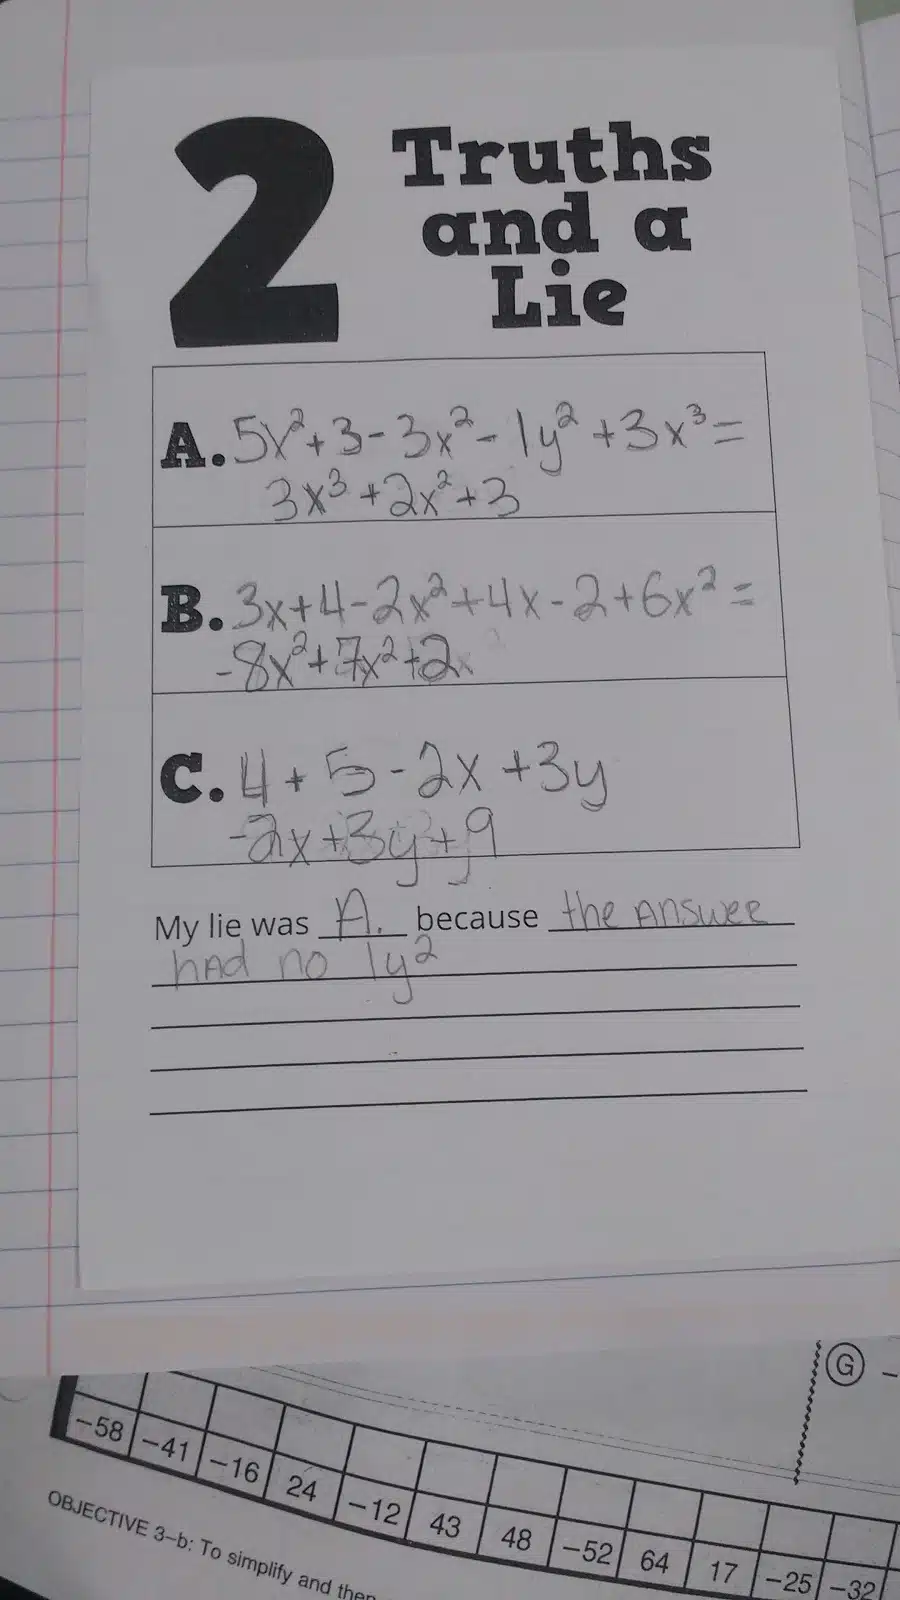 2 Truths
and a
Lie
A. 5x²+3-3x²-1y²+3x³=
3x³+2x²+3
B. 3x+4-2x²+4x-2+6x²=
-8x²+7x²+2
C. 4+5-2x+3y
-2x+3y+9
My lie was A. because the answer
had no 1y²
G -
-58 -41 -16 24 -12 43 48 -52 64 17 -25 -32
OBJECTIVE 3-b: To simplify and then